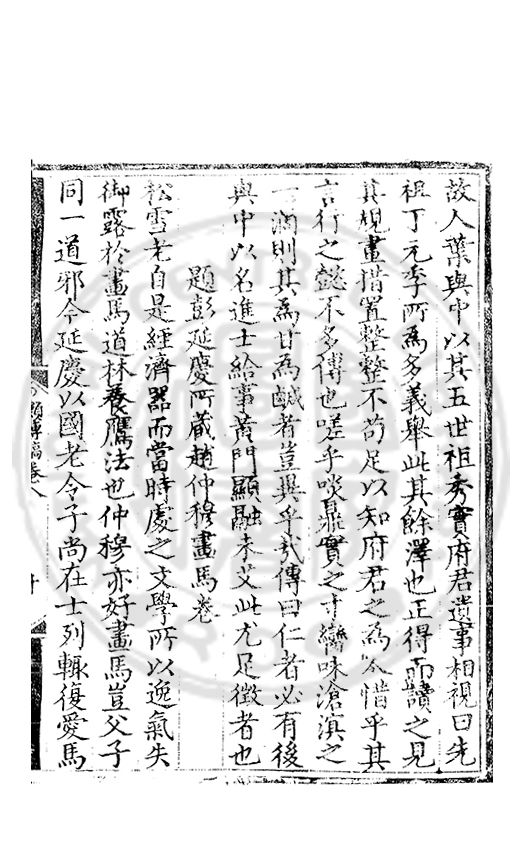 故人葉與中以其五世祖秀實府君遺事相視曰先
祖丁元季所為多義舉此其餘澤也正得而讀之見
其規畫措置整整不苟足以知府君之為今惜乎其
言行之懿不多傳也嗟乎啖鼎實之寸臠味滄溟之
一滴則其為甘為鹹者豈異乎哉傳曰仁者必有後
與中以名進士給事黃門顯融未艾此尤足徵者也
題彭延慶所藏趙仲穆畫馬卷
松雪老自是經濟器而當時處之文學所以逸氣失
御露於畫馬道林養鷹法也仲穆亦好畫馬豈父子
同一道邪今延慶以國老令子尚在士列輒復愛馬
稿卷八
十